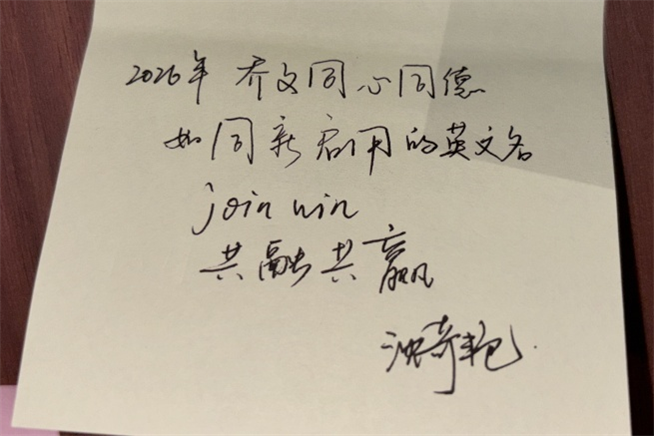 2026年 乔文同心同德
如同新启用的英文名
join win
共融共赢
沈奇艳